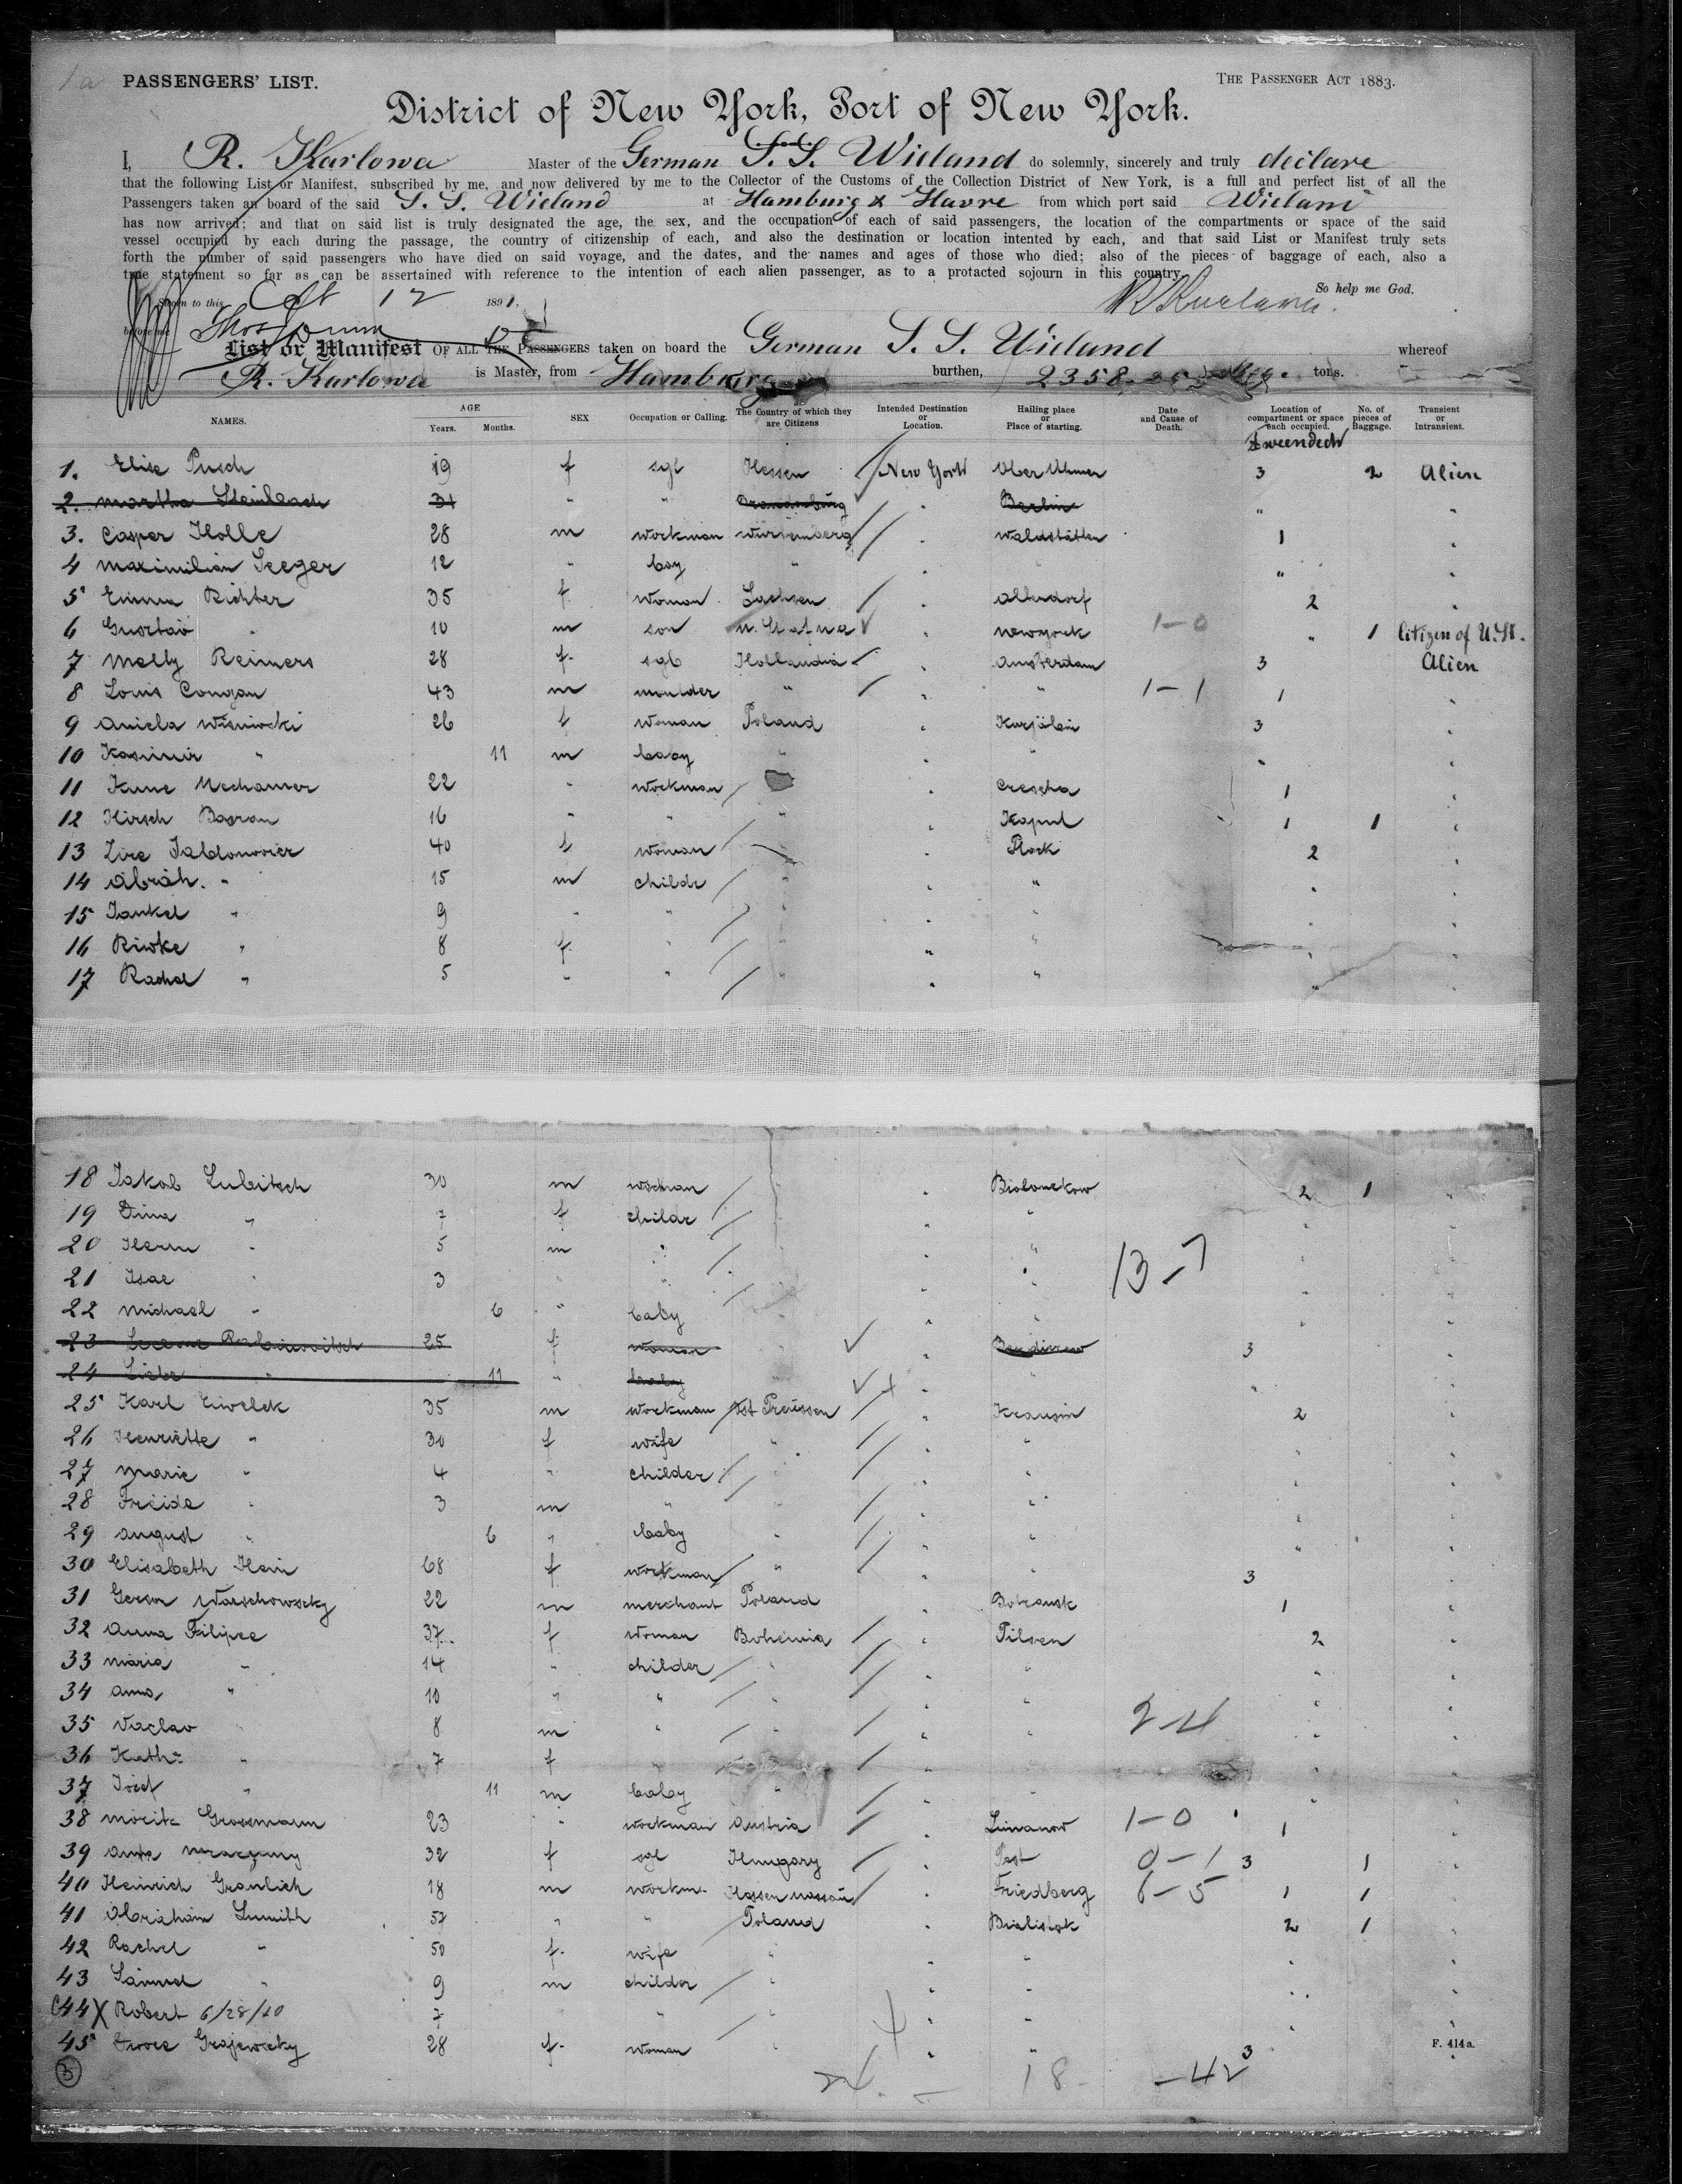 1a PASSENGERS' LIST. THE PASSENGER ACT 1883.
District of New York, Port of New York.
I, R. Karlowa Master of the German S. S. Wieland do solemnly, sincerely and truly declare
that the following List or Manifest, subscribed by me, and now delivered by me to the Collector of the Customs of the Collection District of New York, is a full and perfect list of all the
Passengers taken an board of the said S. S. Wieland at Hamburg & Havre from which port said Wieland
has now arrived; and that on said list is truly designated the age, the sex, and the occupation of each of said passengers, the location of the compartments or space of the said
vessel occupied by each during the passage, the country of citizenship of each, and also the destination or location intented by each, and that said List or Manifest truly sets
forth the number of said passengers who have died on said voyage, and the dates, and the names and ages of those who died; also of the pieces of baggage of each, also a
true statement so far as can be assertained with reference to the intention of each alien passenger, as to a protacted sojourn in this country.
So help me God.
Sworn to this 12 1891. R Karlowa.
before me Thos Dunn
List or Manifest OF ALL THE PASSENGERS taken on board the German S. S. Wieland whereof
R. Karlowa is Master, from Hamburg burthen, 2358 tons.
NAMES. AGE Years. Months. SEX Occupation or Calling. The Country of which they are Citizens Intended Destination or Location. Hailing place or Place of starting. Date and Cause of Death. Location of compartment or space each occupied. No. of pieces of Baggage. Transient or Intransient.
Zweendeck
1. Elise Pusch 19 f sgl Hessen New York Ober Ulmen 3 2 Alien
2. Martha Steinbach 31 " " Brandenburg " Berlin " "
3. Caspar Holle 28 m workman Würtemberg " Waldstätten 1 "
4 Maximilian Seeger 12 " boy " " " " "
5 Emma Richter 35 f. woman Sachsen " Altendorf 2 "
6 Gustav " 10 m son " Newyork 1-0 " 1 Citizen of U.St.
7 Melly Reimers 28 f. sgl Hollandia " Amsterdam 3 Alien
8 Louis 43 m moulder " " " 1-1 1 "
9 Aniela Wisniocki 26 f woman Poland " 3 "
10 Kasimir " 11 m baby " " " " "
11 22 " workman " Crescha 1 "
12 Hirsch 16 " " " " 1 1 "
13 40 f woman " Plock 2 "
14 Abrah. " 15 m childr " " " " "
15 Jankel " 9 " " " " " " "
16 Riwke " 8 f. " " " " " "
17 Rachel " 5 " " " " " " "
18 Jakob Lubitsch 30 m workman " " 2 1 "
19 Dina " 7 f childr " " " " "
20 Herm " 5 m " " " " " "
21 Isac " 3 " " " " " 13-7 " "
22 Michael " 6 " baby " " " " "
23 Rabinowitsch 25 f woman " " 3 "
24 Liebe " 11 " baby " " " " "
25 Karl 35 m workman Ost Preussen " 2 "
26 Henriette " 30 f wife " " " " "
27 Marie " 4 " childer " " " " "
28 Freide " 3 m " " " " " "
29 August " 6 " baby " " " " "
30 Elisabeth Hein 68 f workman " " " 3 "
31 Gerson Warschowsky 22 m merchant Poland " Bobrousk 1 "
32 Anna Filipee 37 f woman Bohemia " Pilsen 2 "
33 Maria " 14 " childer " " " " "
34 Anna " 10 " " " " " " "
35 Vaclav " 8 m " " " " 2-4 " "
36 Kath: " 7 f " " " " " "
37 Josef " 11 m baby " " " " "
38 Moritz Grossmann 23 " workman Austria " Limanow 1-0 1 "
39 32 f sgl Hungary " Pest 0-1 3 1 "
40 Heinrich Graulich 18 m workm. Hessen Nassau " Friedberg 6-5 1 1 "
41 Abraham 57 " " Poland " Bialistok 2 1 "
42 Rachel " 50 f. wife " " " " "
43 Samuel " 9 m childer " " " " "
44 X Robert 6/28/40 7 " " " " " " "
45 Grajewsky 28 f. woman " " " 3 "
F. 414a.
3 24. - 18 - 42